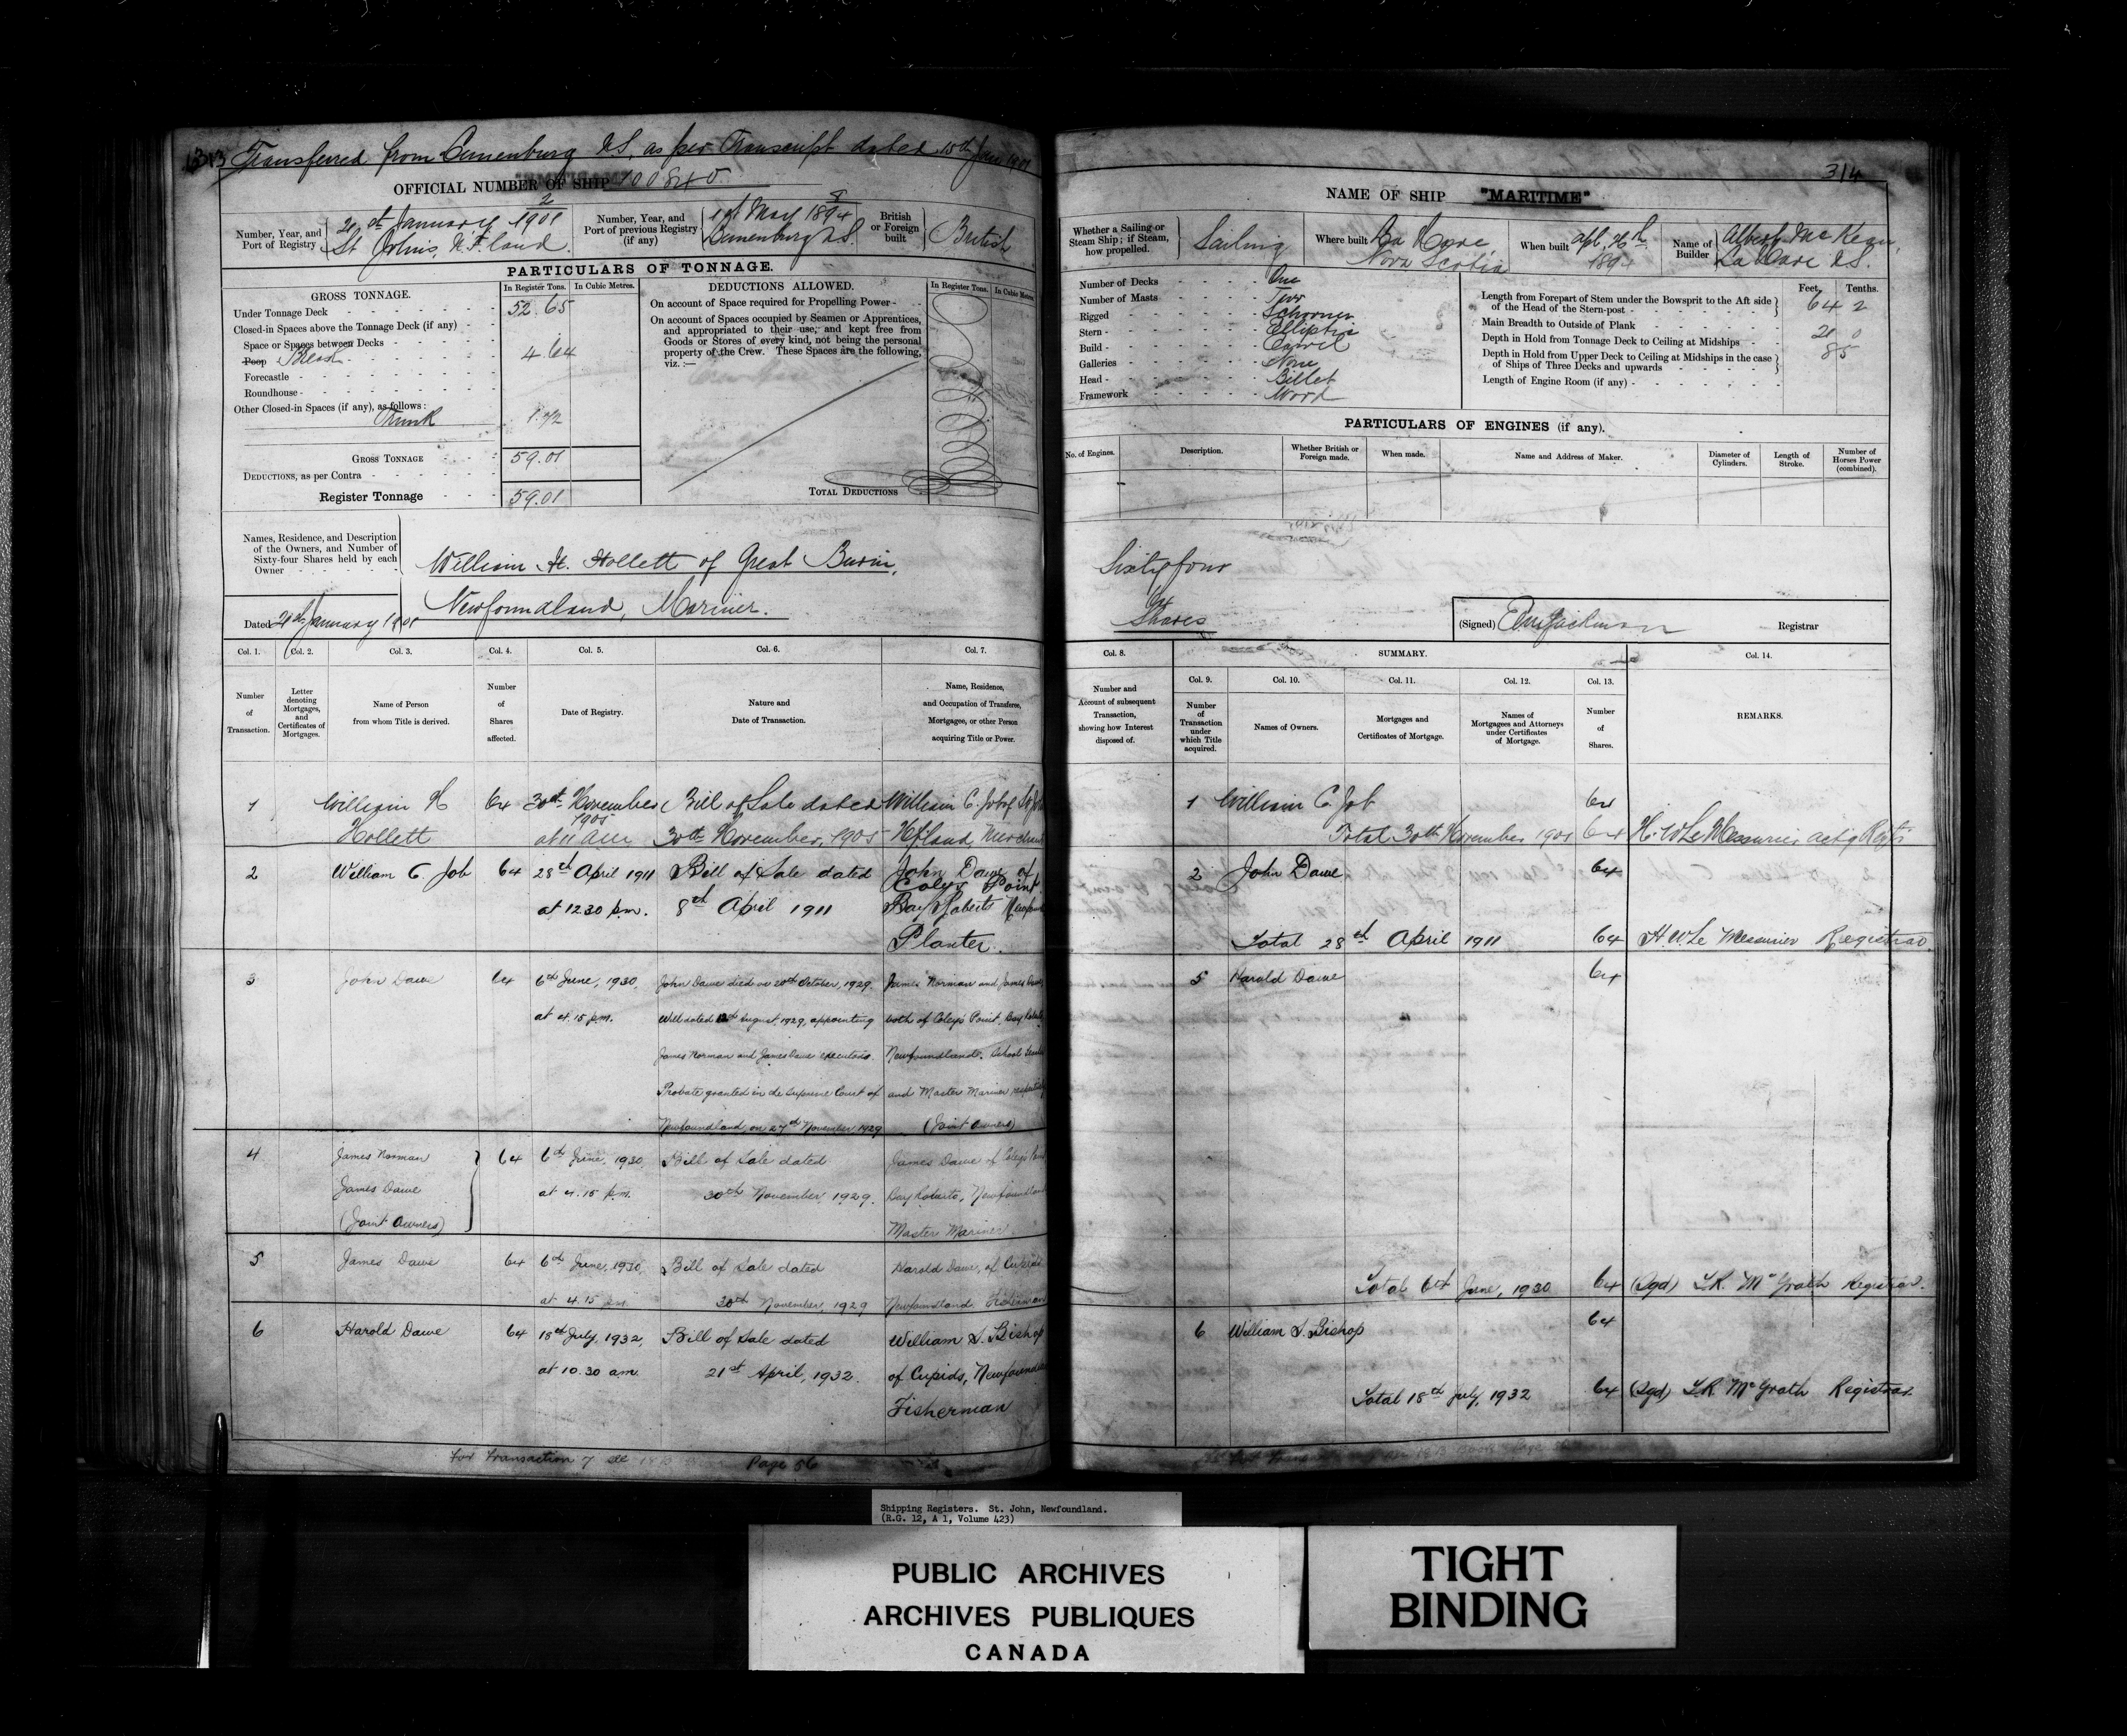 313 Transferred from Lunenburg N.S. as per Transcript dated 15th Jany 1901
OFFICIAL NUMBER OF SHIP 100840
Number, Year, and Port of Registry
2
21st January 1901
St Johns, N.F.land.
Number, Year, and Port of previous Registry (if any)
8
1st May 1894
Lunenburg N.S.
British or Foreign built
British
PARTICULARS OF TONNAGE.
GROSS TONNAGE.
In Register Tons.
In Cubic Metres.
Under Tonnage Deck 52.65
Closed-in Spaces above the Tonnage Deck (if any)
Space or Spaces between Decks
Poop Break 4.64
Forecastle
Roundhouse
Other Closed-in Spaces (if any), as follows:
Trunk 1.72
GROSS TONNAGE 59.01
DEDUCTIONS, as per Contra
Register Tonnage 59.01
DEDUCTIONS ALLOWED.
In Register Tons.
In Cubic Metres.
On account of Space required for Propelling Power
On account of Spaces occupied by Seamen or Apprentices,
and appropriated to their use, and kept free from
Goods or Stores of every kind, not being the personal
property of the Crew. These Spaces are the following,
viz.:—
TOTAL DEDUCTIONS
Names, Residence, and Description
of the Owners, and Number of
Sixty-four Shares held by each
Owner
William H. Hollett of Great Burin,
Newfoundland, Mariner.
Dated 21st January 1901
Col. 1.
Number of Transaction.
Col. 2.
Letter denoting Mortgages, and Certificates of Mortgages.
Col. 3.
Name of Person from whom Title is derived.
Col. 4.
Number of Shares affected.
Col. 5.
Date of Registry.
Col. 6.
Nature and Date of Transaction.
Col. 7.
Name, Residence, and Occupation of Transferee, Mortgagee, or other Person acquiring Title or Power.
1 William H 64 30th November Bill of Sale dated William C. Job of St
1905
Hollett at 11 am 30th November, 1905 Nfland, Merchant
2 William C. Job 64 28th April 1911 Bill of Sale dated John Dawe of
Coleys Point
at 12.30 p.m. 8th April 1911 Bay Roberts
Planter.
3 John Dawe 64 6th June, 1930, John Dawe died on 20th October, 1929. James Norman and James Dawe
at 4.15 p.m. Will dated August, 1929, appointing both of Coley's Point, Bay Roberts,
James Norman and James Dawe executors. Newfoundland. School
Probate granted in the Supreme Court of and Master Mariner respectively
Newfoundland, on 27th November 1929 (Joint Owners)
4 James Norman 64 6th June, 1930, Bill of Sale dated James Dawe of Coley's
James Dawe at 4.15 p.m. 30th November 1929. Bay Roberts, Newfoundland
(Joint Owners) Master Mariner
5 James Dawe 64 6th June, 1930, Bill of Sale dated Harold Dawe, of Cupids
at 4.15 pm 30th November, 1929 Newfoundland Fisherman
6 Harold Dawe 64 18th July, 1932, Bill of Sale dated William S. Bishop
at 10.30 am. 21st April, 1932. of Cupids,
Fisherman
For Transaction 7 see Page 56
314
NAME OF SHIP "MARITIME"
Whether a Sailing or Steam Ship; if Steam, how propelled.
Sailing
Where built
La Have
Nova Scotia
When built
Apl. 26th
1894
Name of Builder
Albert McKean,
La Have N.S.
Number of Decks One
Number of Masts Two
Rigged Schooner
Stern Elliptic
Build Carvel
Galleries None
Head Billet
Framework Wood
Feet. Tenths.
Length from Forepart of Stem under the Bowsprit to the Aft side
of the Head of the Stern-post 64 2
Main Breadth to Outside of Plank 21 0
Depth in Hold from Tonnage Deck to Ceiling at Midships 8 5
Depth in Hold from Upper Deck to Ceiling at Midships in the case
of Ships of Three Decks and upwards
Length of Engine Room (if any)
PARTICULARS OF ENGINES (if any).
No. of Engines.
Description.
Whether British or Foreign made.
When made.
Name and Address of Maker.
Diameter of Cylinders.
Length of Stroke.
Number of Horses Power (combined).
Sixtyfour
64
Shares
(Signed) Registrar
Col. 8.
Number and Account of subsequent Transaction, showing how Interest disposed of.
SUMMARY.
Col. 9.
Number of Transaction under which Title acquired.
Col. 10.
Names of Owners.
Col. 11.
Mortgages and Certificates of Mortgage.
Col. 12.
Names of Mortgagees and Attorneys under Certificates of Mortgage.
Col. 13.
Number of Shares.
Col. 14.
REMARKS.
1 William C. Job 64
Total 30th November 1905 64 H. W. LeMessurier actg Regtr
2 John Dawe 64
Total 28th April 1911 64 H. W. Le Messurier Registrar
5 Harold Dawe 64
Total 6th June, 1930 64 (Sgd) L.R. McGrath Registrar.
6 William S. Bishop 64
Total 18th July, 1932 64 (Sgd) L.R. McGrath Registrar
Shipping Registers. St. John, Newfoundland.
(R.G. 12, A 1, Volume 423)
PUBLIC ARCHIVES
ARCHIVES PUBLIQUES
CANADA
TIGHT
BINDING